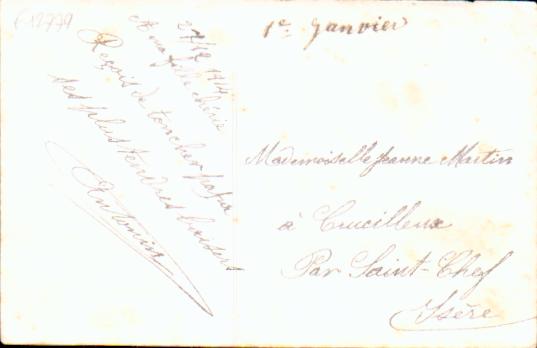 612779
1er Janvier
27/12 1914
A ma fille chérie
Reçois de ton cher papa
ses plus tendres baisers
Antonin
Mademoiselle Jeanne Martin
à Crucilleux
Par Saint-Chef
Isère